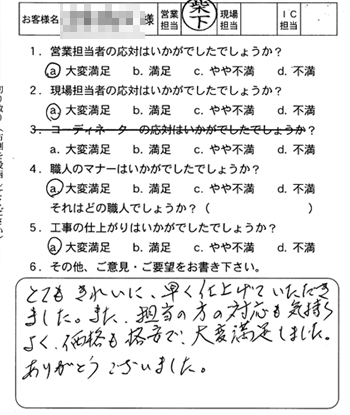 お客様名 様 営業担当 柴下 現場担当 IC担当
1．営業担当者の応対はいかがでしたでしょうか？
a 大変満足 b．満足 c．やや不満 d．不満
2．現場担当者の応対はいかがでしたでしょうか？
a 大変満足 b．満足 c．やや不満 d．不満
3．コーディネーターの応対はいかがでしたでしょうか？
a．大変満足 b．満足 c．やや不満 d．不満
4．職人のマナーはいかがでしたでしょうか？
a 大変満足 b．満足 c．やや不満 d．不満
それはどの職人でしょうか？（ ）
5．工事の仕上がりはいかがでしたでしょうか？
a 大変満足 b．満足 c．やや不満 d．不満
6．その他、ご意見・ご要望をお書き下さい。
とてもきれいに、早く仕上げていただき
ました。また、担当の方の対応も気持ち
よく、価格も格安で、大変満足しました。
ありがとうございました。